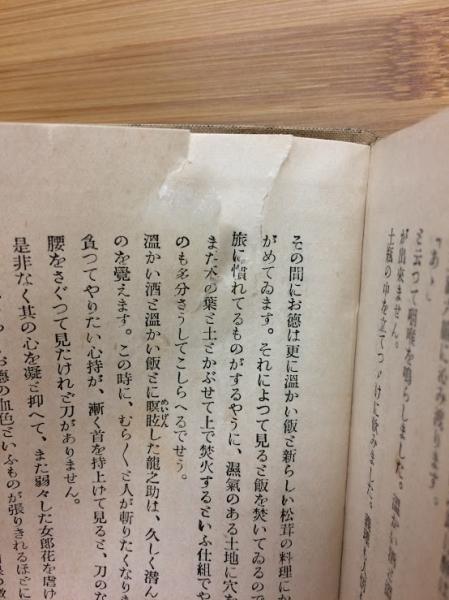 と云つて咽喉を鳴らしました。溫かい酒と
が出來ません。
土瓶の中を立てつゞけに飮みました。
その間にお德は更に溫かい飯と新らしい松茸の料理にか
がめてゐます。それによつて見ると飯を焚いてゐるので
旅に慣れてるものがするやうに、濕氣のある土地に穴を
また木の葉と土とかぶせて上で焚火するといふ仕組でや
のも多分さうしてこしらへるでせう。
溫かい酒と溫かい飯とに瞑眩した龍之助は、久しく潜ん
めいげん
のを覺えます。この時に、むら〱と人が斬りたくなりま
負つてやりたい心持が、漸く首を持上げて見ると、刀のな
腰をさぐつて見たけれど刀がありません。
是非なく其の心を凝と抑へて、また弱々した女郎花を虐け
お德の血色といふものが張りきれるほどに